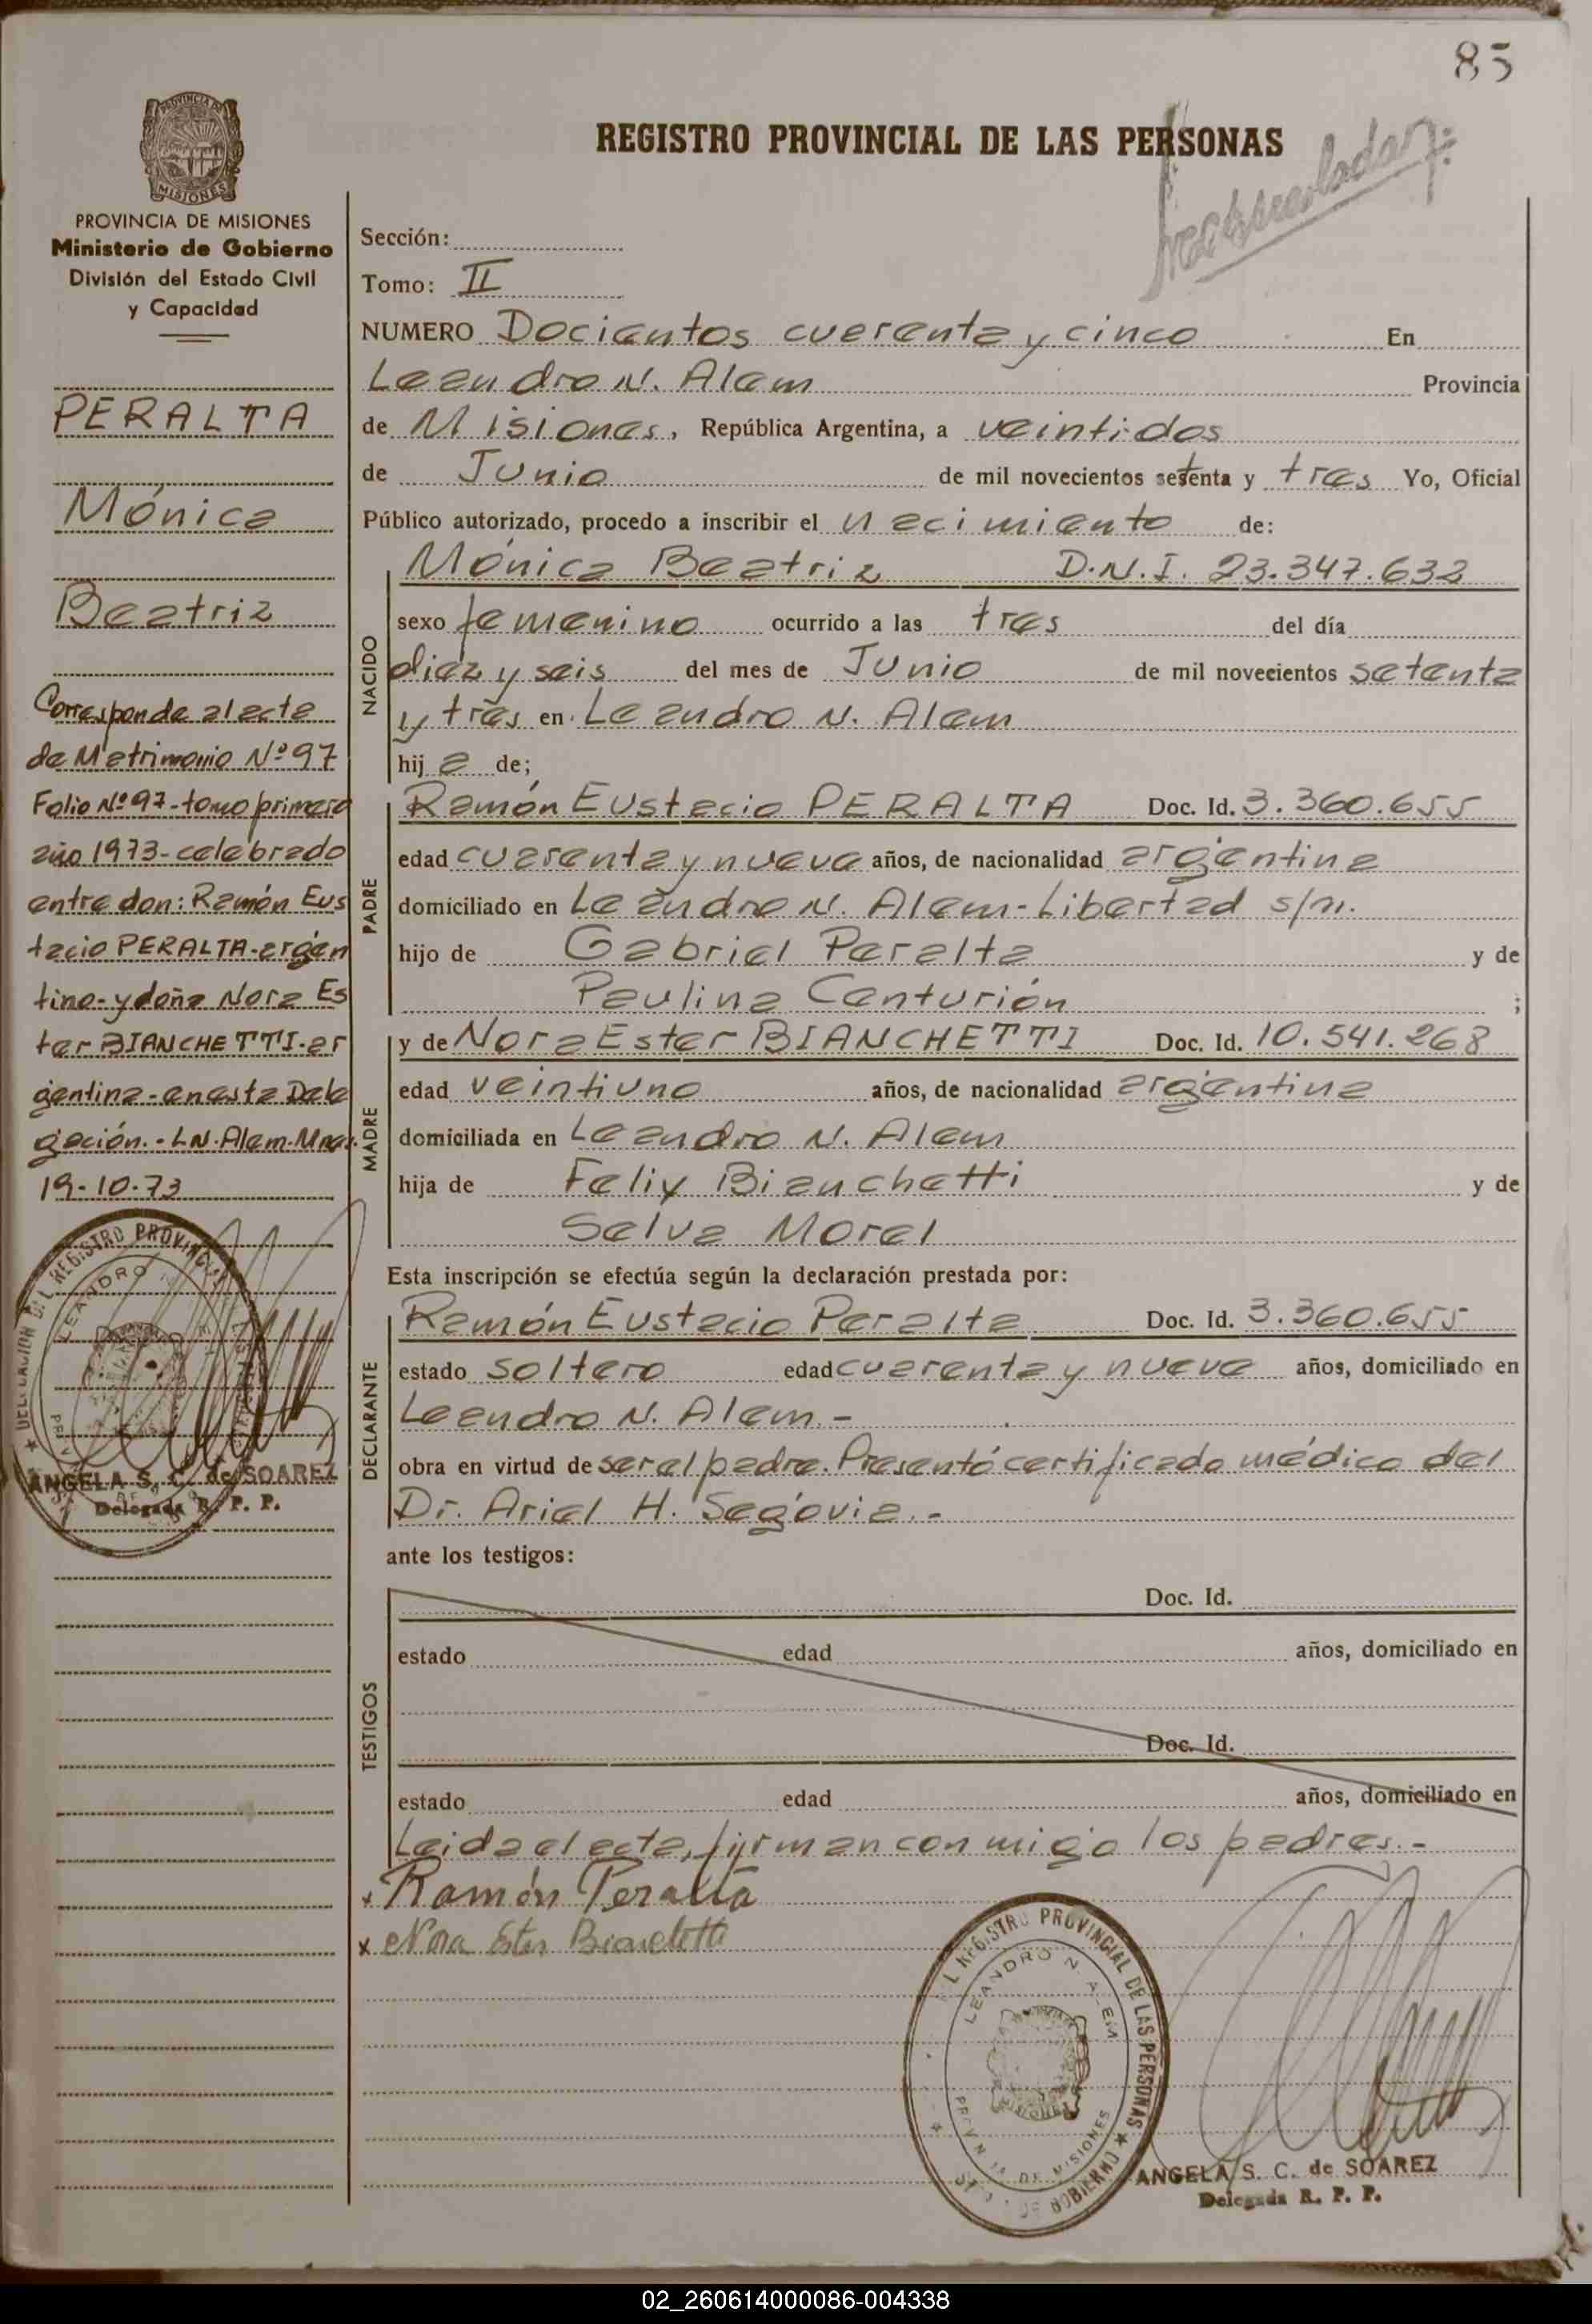 85
REGISTRO PROVINCIAL DE LAS PERSONAS
PROVINCIA DE
MISIONES
PROVINCIA DE MISIONES
Ministerio de Gobierno
División del Estado Civil
y Capacidad
PERALTA
Mónica
Beatriz
Corresponde al acta
de Matrimonio Nº 97
Folio Nº 97 - tomo primero
año 1973 - celebrado
entre don: Ramón Eus
tacio PERALTA - argen
tino - y doña Nora Es
ter BIANCHETTI - ar
gentina - en esta Dele
gación. - L.N. Alem. Mnes.
19-10-73
REGISTRO PROVINCIAL
LEANDRO N.
ANGELA S. C. de SOAREZ
Delegada R. P. P.
Sección:
Tomo: II
NUMERO Docientos cuarenta y cinco En
Leandro N. Alem Provincia
de Misiones, República Argentina, a veintidos
de Junio de mil novecientos setenta y tres Yo, Oficial
Público autorizado, procedo a inscribir el nacimiento de:
NACIDO
Mónica Beatriz D.N.I. 23.347.632
sexo femenino ocurrido a las tres del día
diez y seis del mes de Junio de mil novecientos setenta
y tres en Leandro N. Alem
hij a de;
PADRE
Ramón Eustacio PERALTA Doc. Id. 3.360.655
edad cuarenta y nueve años, de nacionalidad argentina
domiciliado en Leandro N. Alem - Libertad s/n.
hijo de Gabriel Peralta y de
Paulina Centurión ;
MADRE
y de Nora Ester BIANCHETTI Doc. Id. 10.541.268
edad veintiuno años, de nacionalidad argentina
domiciliada en Leandro N. Alem
hija de Felix Bianchetti y de
Selva Morel
Esta inscripción se efectúa según la declaración prestada por:
DECLARANTE
Ramón Eustacio Peralta Doc. Id. 3.360.655
estado soltero edad cuarenta y nueve años, domiciliado en
Leandro N. Alem -
obra en virtud de ser el padre. Presentó certificado médico del
Dr. Ariel H. Segovia. -
ante los testigos:
TESTIGOS
Doc. Id.
estado edad años, domiciliado en
Doc. Id.
estado edad años, domiciliado en
Leida el acta, firman con migo los padres. -
x Ramón Peralta
x Nora Ester Bianchetti
REGISTRO PROVINCIAL DE LAS PERSONAS
LEANDRO N. ALEM
DE MISIONES
DE GOBIERNO
ANGELA S. C. de SOAREZ
Delegada R. P. P.
02_260614000086-004338